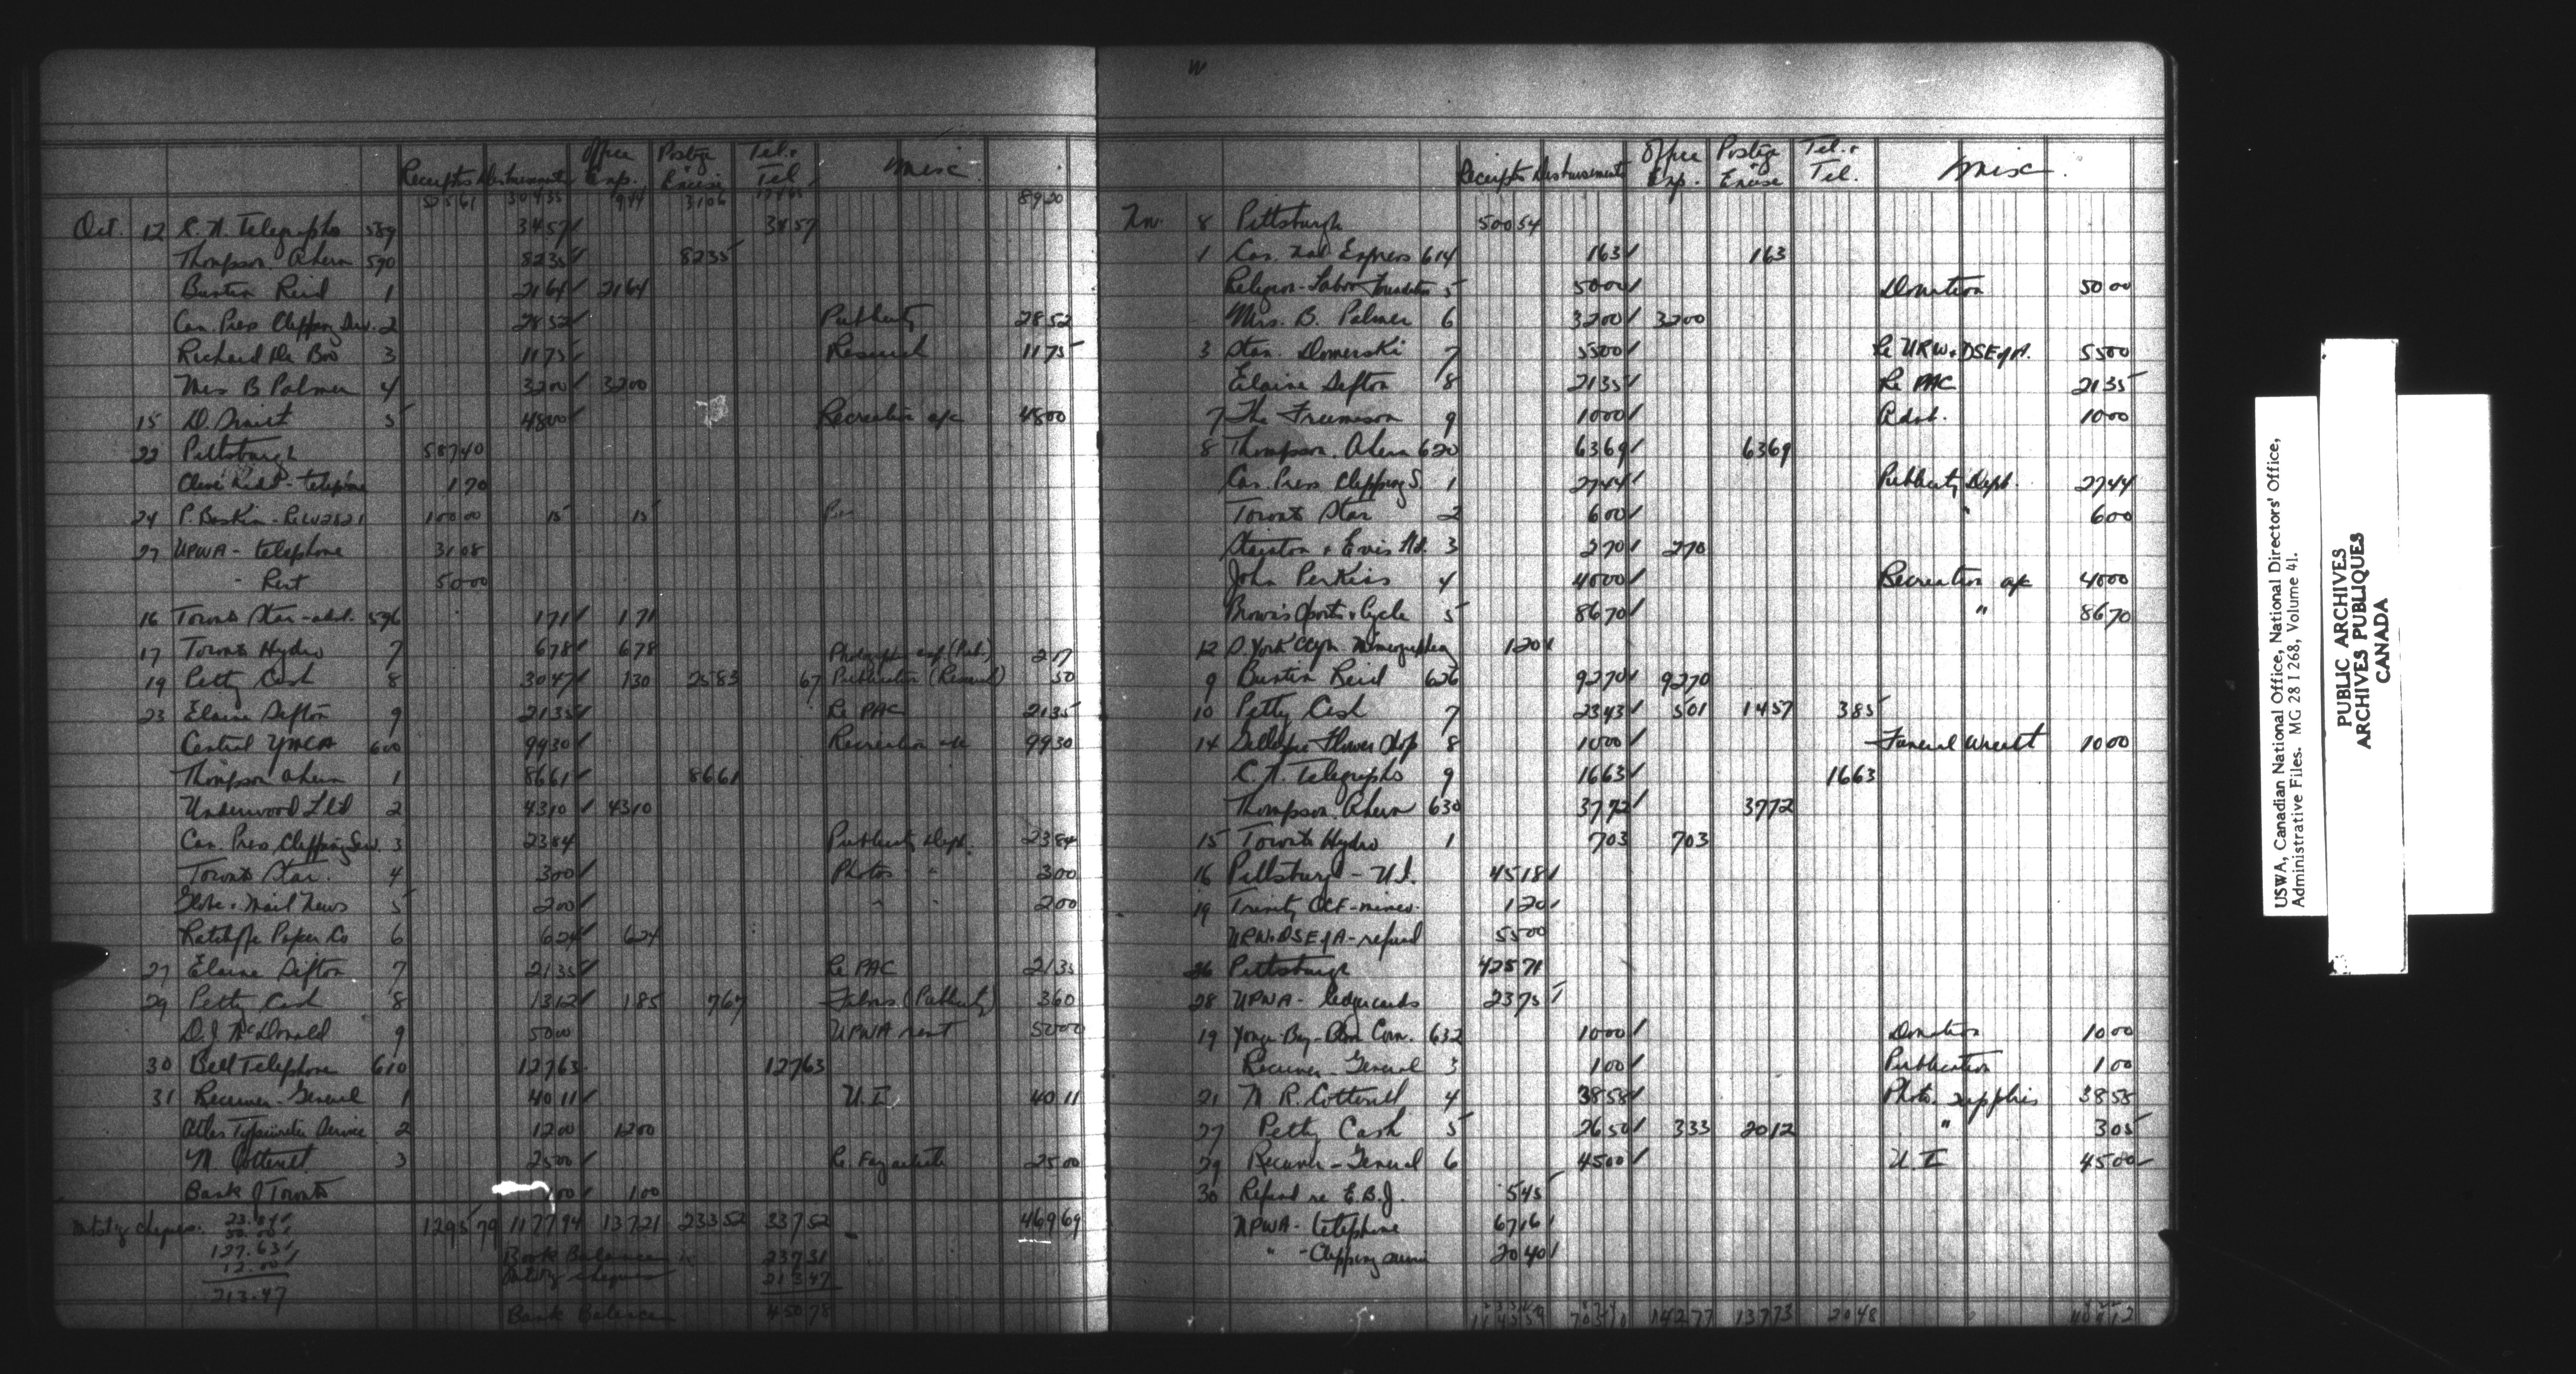 Receipts Disbursements Office Exp. Postage & Excise Tel. & Tel. Misc.
525 61 304 35 9 44 31 06 89 20
Oct. 12 C. N. Telegraphs 589 34 57 34 57
Thompson Ahern 590 82 35 82 35
Buntin Reid 1 21 64 21 64
Can. Press Clipping Serv. 2 28 52 Publicity 28 52
Richard De Boo 3 11 75 Research 11 75
Mrs B Palmer 4 32 00 32 00
15 D. 5 48 00 Recreation a/c 48 00
22 Pittsburgh 587 40
- telephone 1 70
24 P. Baskin - Re LU 2821 100 00 15 15
27 UPWA - telephone 31 08
" Rent 50 00
16 Toronto Star - advt. 596 1 71 1 71
17 Toronto Hydro 7 6 78 6 78 Photographic exp (Pub.) 2 17
19 Petty Cash 8 30 47 1 30 25 83 67 Publication (Research) 50
23 Elaine Sefton 9 21 35 Re PAC 21 35
Central YMCA 600 99 30 Recreation a/c 99 30
Thompson Ahern 1 86 61 86 61
Underwood Ltd 2 43 10 43 10
Can. Press Clipping Serv. 3 23 84 Publicity Dept. 23 84
Toronto Star. 4 3 00 Photos " 3 00
Globe & Mail News 5 2 00 " " 2 00
Ratcliffe Paper Co 6 6 24 6 24
27 Elaine Sefton 7 21 35 Re PAC 21 35
29 Petty Cash 8 13 12 1 85 7 67 (Publicity) 3 60
D. J. McDonald 9 50 00 UPWA rent 50 00
30 Bell Telephone 610 127 63 127 63
31 Receiver-General 1 40 11 U. I. 40 11
Atlas Typewriter Service 2 12 00 12 00
M. Cotterell 3 25 00 Re. 25 00
Bank of Toronto 1 00 1 00
cheques. 23.84 1295 79 1177 94 137 21 233 52 337 52 469 69
50.00
127.63 Book Balance 237 31
12.00 Outstg cheques 213 47
213.47
Bank Balance 450 78
Receipts Disbursements Office Exp. Postage & Excise Tel. & Tel. Misc.
Nov. 8 Pittsburgh 500 54
1 Can. Nat Express 614 1 63 1 63
Religion-Labor Foundation 5 50 00 Donation 50 00
Mrs. B. Palmer 6 32 00 32 00
3 Stan. Domerski 7 55 00 Re URW & DSEofA. 55 00
Elaine Sefton 8 21 35 Re PAC 21 35
7 The Freemason 9 10 00 Advt. 10 00
8 Thompson. Ahern 620 63 69 63 69
Can. Press Clipping S. 1 27 44 Publicity Dept. 27 44
Toronto Star 2 6 00 " 6 00
Stainton & Evis Ltd. 3 2 70 2 70
John Perkins 4 40 00 Recreation a/c 40 00
Brown's Sports & Cycle 5 86 70 " 86 70
12 S. York CCYM. Mimeographing 1 20
9 Buntin Reid 626 92 70 92 70
10 Petty Cash 7 23 43 5 01 14 57 3 85
14 Flower Shop 8 10 00 Funeral Wreath 10 00
C. N. Telegraphs 9 16 63 16 63
Thompson. Ahern 630 37 72 37 72
15 Toronto Hydro 1 7 03 7 03
16 Pittsburgh - U.I. 45 18
19 Trinity CCF - mimeo. 1 20
URW & DSEofA - refund 55 00
26 Pittsburgh 425 71
28 UPWA - ledger cards 23 75
19 Yonge-Bay-Bloor Com. 632 10 00 Donation 10 00
Receiver-General 3 1 00 Publication 1 00
21 M R. Cotterell 4 38 58 Photo. supplies 38 58
27 Petty Cash 5 26 50 3 33 20 12 " 3 05
29 Receiver-General 6 45 00 U. I 45 00
30 Refund re E.B.J. 5 45
UPWA - telephone 67 16
" - Clipping service 20 40
142 77 137 73 20 48
USWA, Canadian National Office, National Directors' Office,
Administrative Files. MG 28 I 268, Volume 41.
PUBLIC ARCHIVES
ARCHIVES PUBLIQUES
CANADA